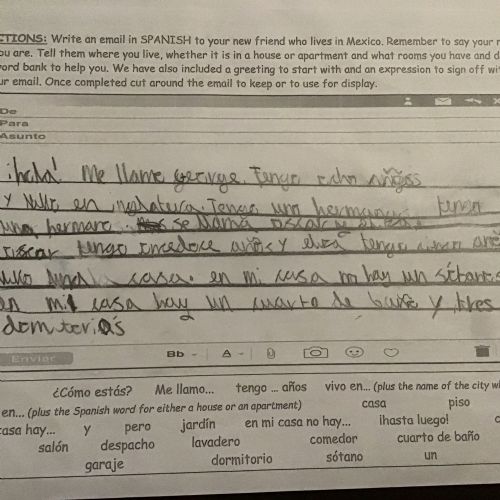 CTIONS: Write an email in SPANISH to your new friend who lives in Mexico. Remember to say your n
ou are. Tell them where you live, whether it is in a house or apartment and what rooms you have and d
ord bank to help you. We have also included a greeting to start with and an expression to sign off wi
ur email. Once completed cut around the email to keep or to use for display.
De
Para
Asunto
¡hola! Me llamo George. Tengo ocho años
y vivo en inglaterra. Tengo uno hermanas tengo
uno hermano se llama oscar
oscar tengo años y tengo años
vivo casa. en mi casa no hay un sótano
en mi casa hay un cuarto de baño y tres
dormitorios
Enviar
Bb A
¿Cómo estás? Me llamo... tengo ... años vivo en... (plus the name of the city w
en... (plus the Spanish word for either a house or an apartment) casa piso
casa hay... y pero jardín en mi casa no hay... ¡hasta luego!
salón despacho lavadero comedor cuarto de baño
garaje dormitorio sótano un